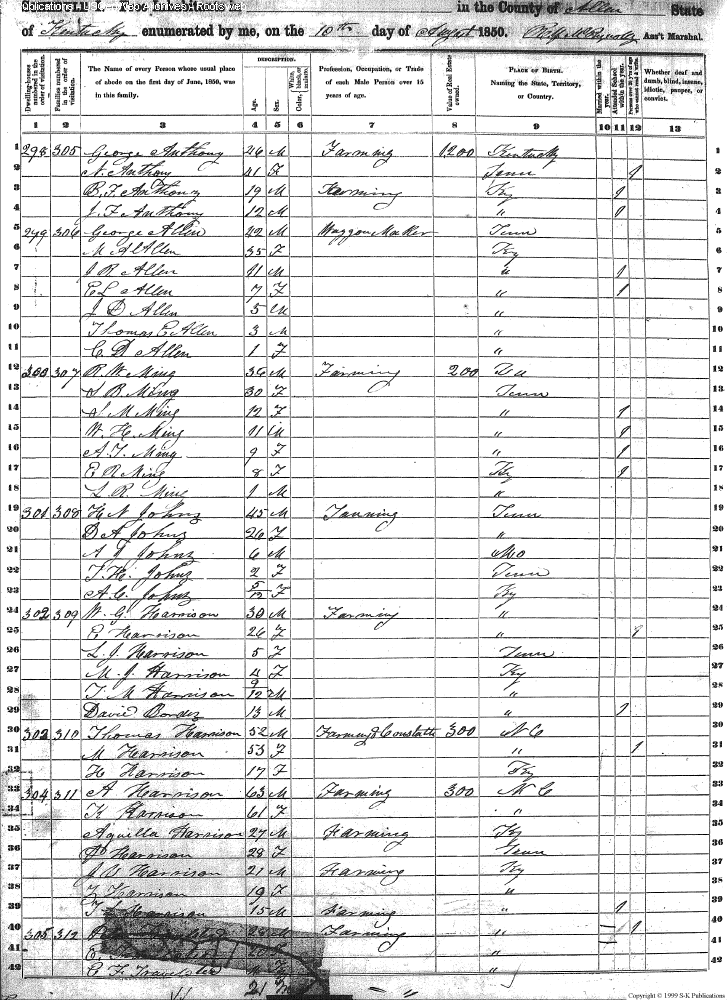 in the County of Allen State
of Kentucky enumerated by me, on the 10th day of August 1850. Ass't Marshal.
Dwelling-houses numbered in the order of visitation.
Families numbered in the order of visitation.
The Name of every Person whose usual place of abode on the first day of June, 1850, was in this family.
DESCRIPTION.
Age.
Sex.
White, black, or mulatto.
Color,
Profession, Occupation, or Trade of each Male Person over 15 years of age.
Value of Real Estate owned.
PLACE OF BIRTH. Naming the State, Territory, or Country.
Married within the year.
Attended School within the year.
Whether deaf and dumb, blind, insane, idiotic, pauper, or convict.
1 2 3 4 5 6 7 8 9 10 11 12 13
1 298 305 George Anthony 46 M Farming 1200 Kentucky 1
2 N. Anthony 41 F Tenn 1 2
3 B. F. Anthony 19 M Farming Ky 1 3
4 J. F. Anthony 12 M " 1 4
5 299 306 George Allen 42 M Waggon Maker Tenn 5
6 M A Allen 35 F Ky 6
7 J R Allen 11 M " 1 7
8 E L Allen 7 F " 1 8
9 J D Allen 5 M " 9
10 Thomas C Allen 3 M " 10
11 C D Allen 1 F " 11
12 300 307 R. W. Ming 36 M Farming 200 12
13 S B. Ming 30 F Tenn 13
14 S. M Ming 12 F " 1 14
15 W. H. Ming 11 M " 1 15
16 A. J. Ming 9 F " 1 16
17 E R Ming 8 F Ky 1 17
18 L. R. Ming 1 M " 18
19 301 308 H. N Johns 45 M Tanning Tenn 19
20 D A Johns 26 F " 20
21 A J Johns 6 M Mo 21
22 T. H. Johns 2 F Tenn 22
23 A. C. Johns 5/12 F Ky 23
24 302 309 W. G. Harrison 30 M Farming " 24
25 E Harrison 26 F " 25
26 L. J. Harrison 5 F Tenn 26
27 M. J. Harrison 4 F Ky 27
28 T. M Harrison 9/12 M " 28
29 David Border 13 M " 1 29
30 303 310 Thomas Harrison 52 M Farming & Constable 300 N C 30
31 M Harrison 53 F " 1 31
32 H Harrison 17 F Ky 32
33 304 311 A Harrison 63 M Farming 300 N C 33
34 K Harrison 61 F " 34
35 Aquilla Harrison 27 M Farming Ky 35
36 Harrison 28 F Tenn 36
37 J. V Harrison 21 M Farming Ky 37
38 Harrison 19 F " 38
39 Harrison 15 M Farming " 1 39
40 305 312 Farming " 40
41 " 41
42 E F Travelsted " 42
21
Copyright © 1999 S-K Publications